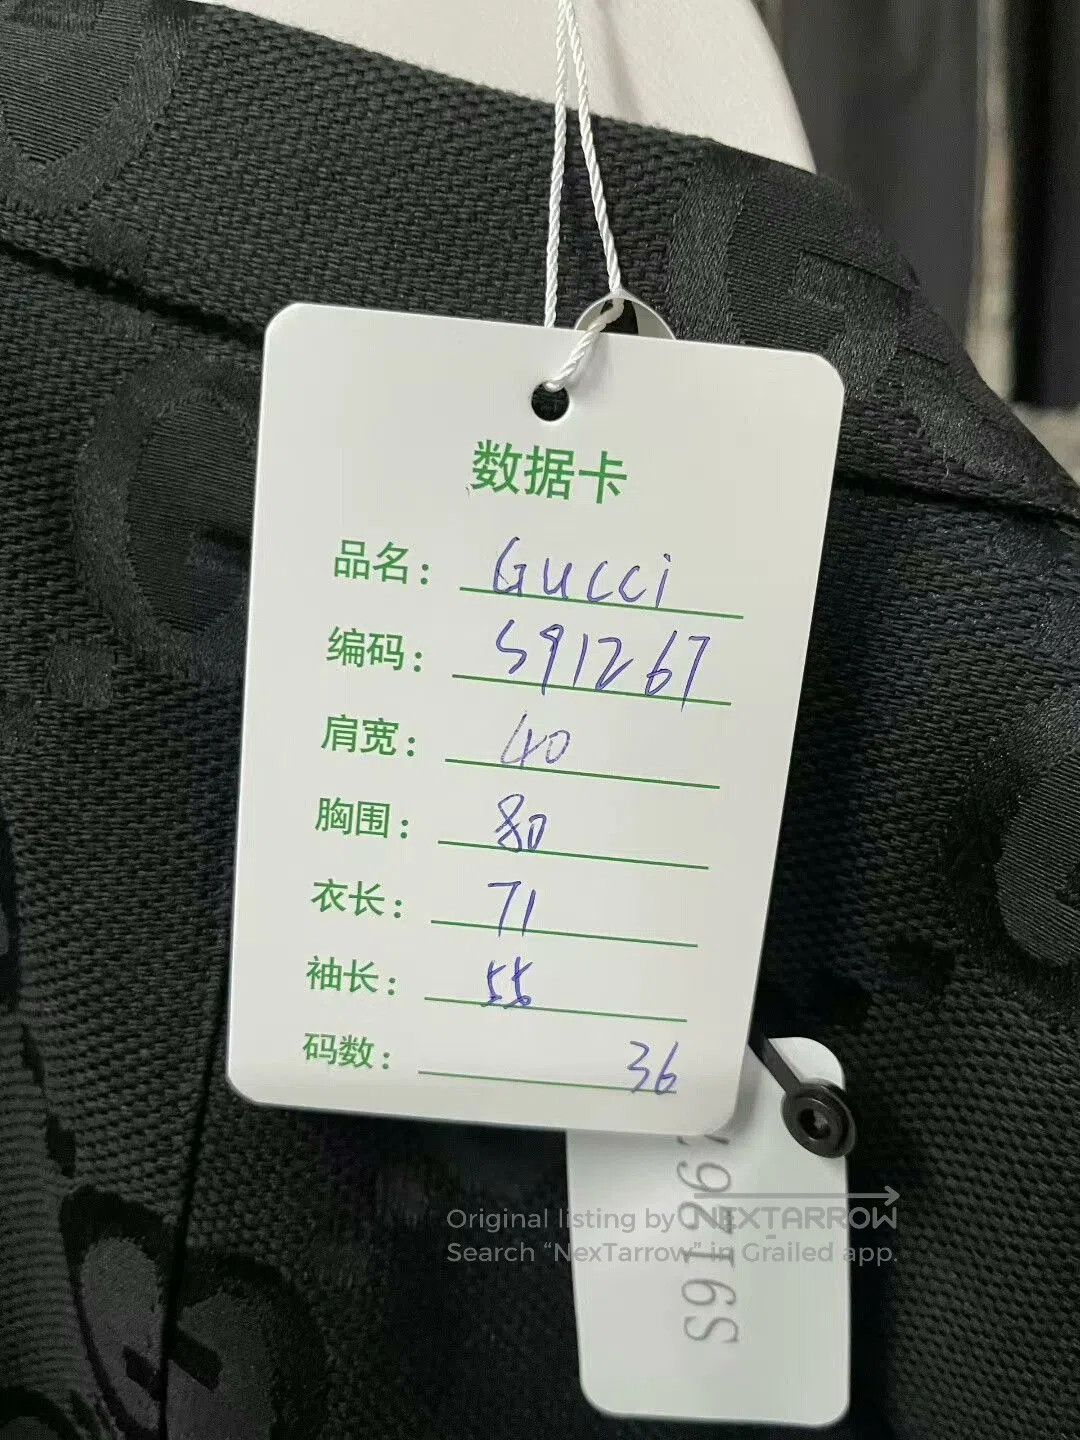 数据卡
品名: Gucci
编码: S91267
肩宽: 40
胸围: 80
衣长: 71
袖长: 55
码数: 36
S91267
Original listing by NEXTARROW
Search “NexTarrow” in Grailed app.